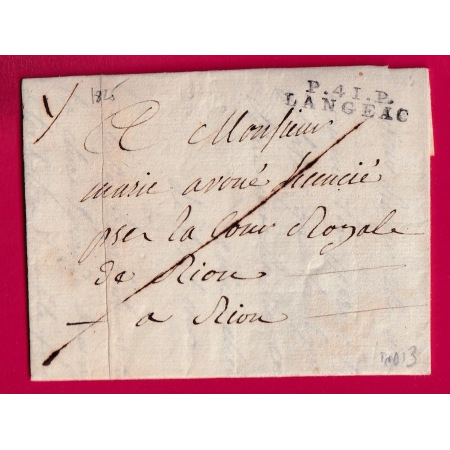 1825
P.41.P.
LANGEAC
A Monsieur
marie avoué licencié
pres la Cour Royale
de Riom
a Riom